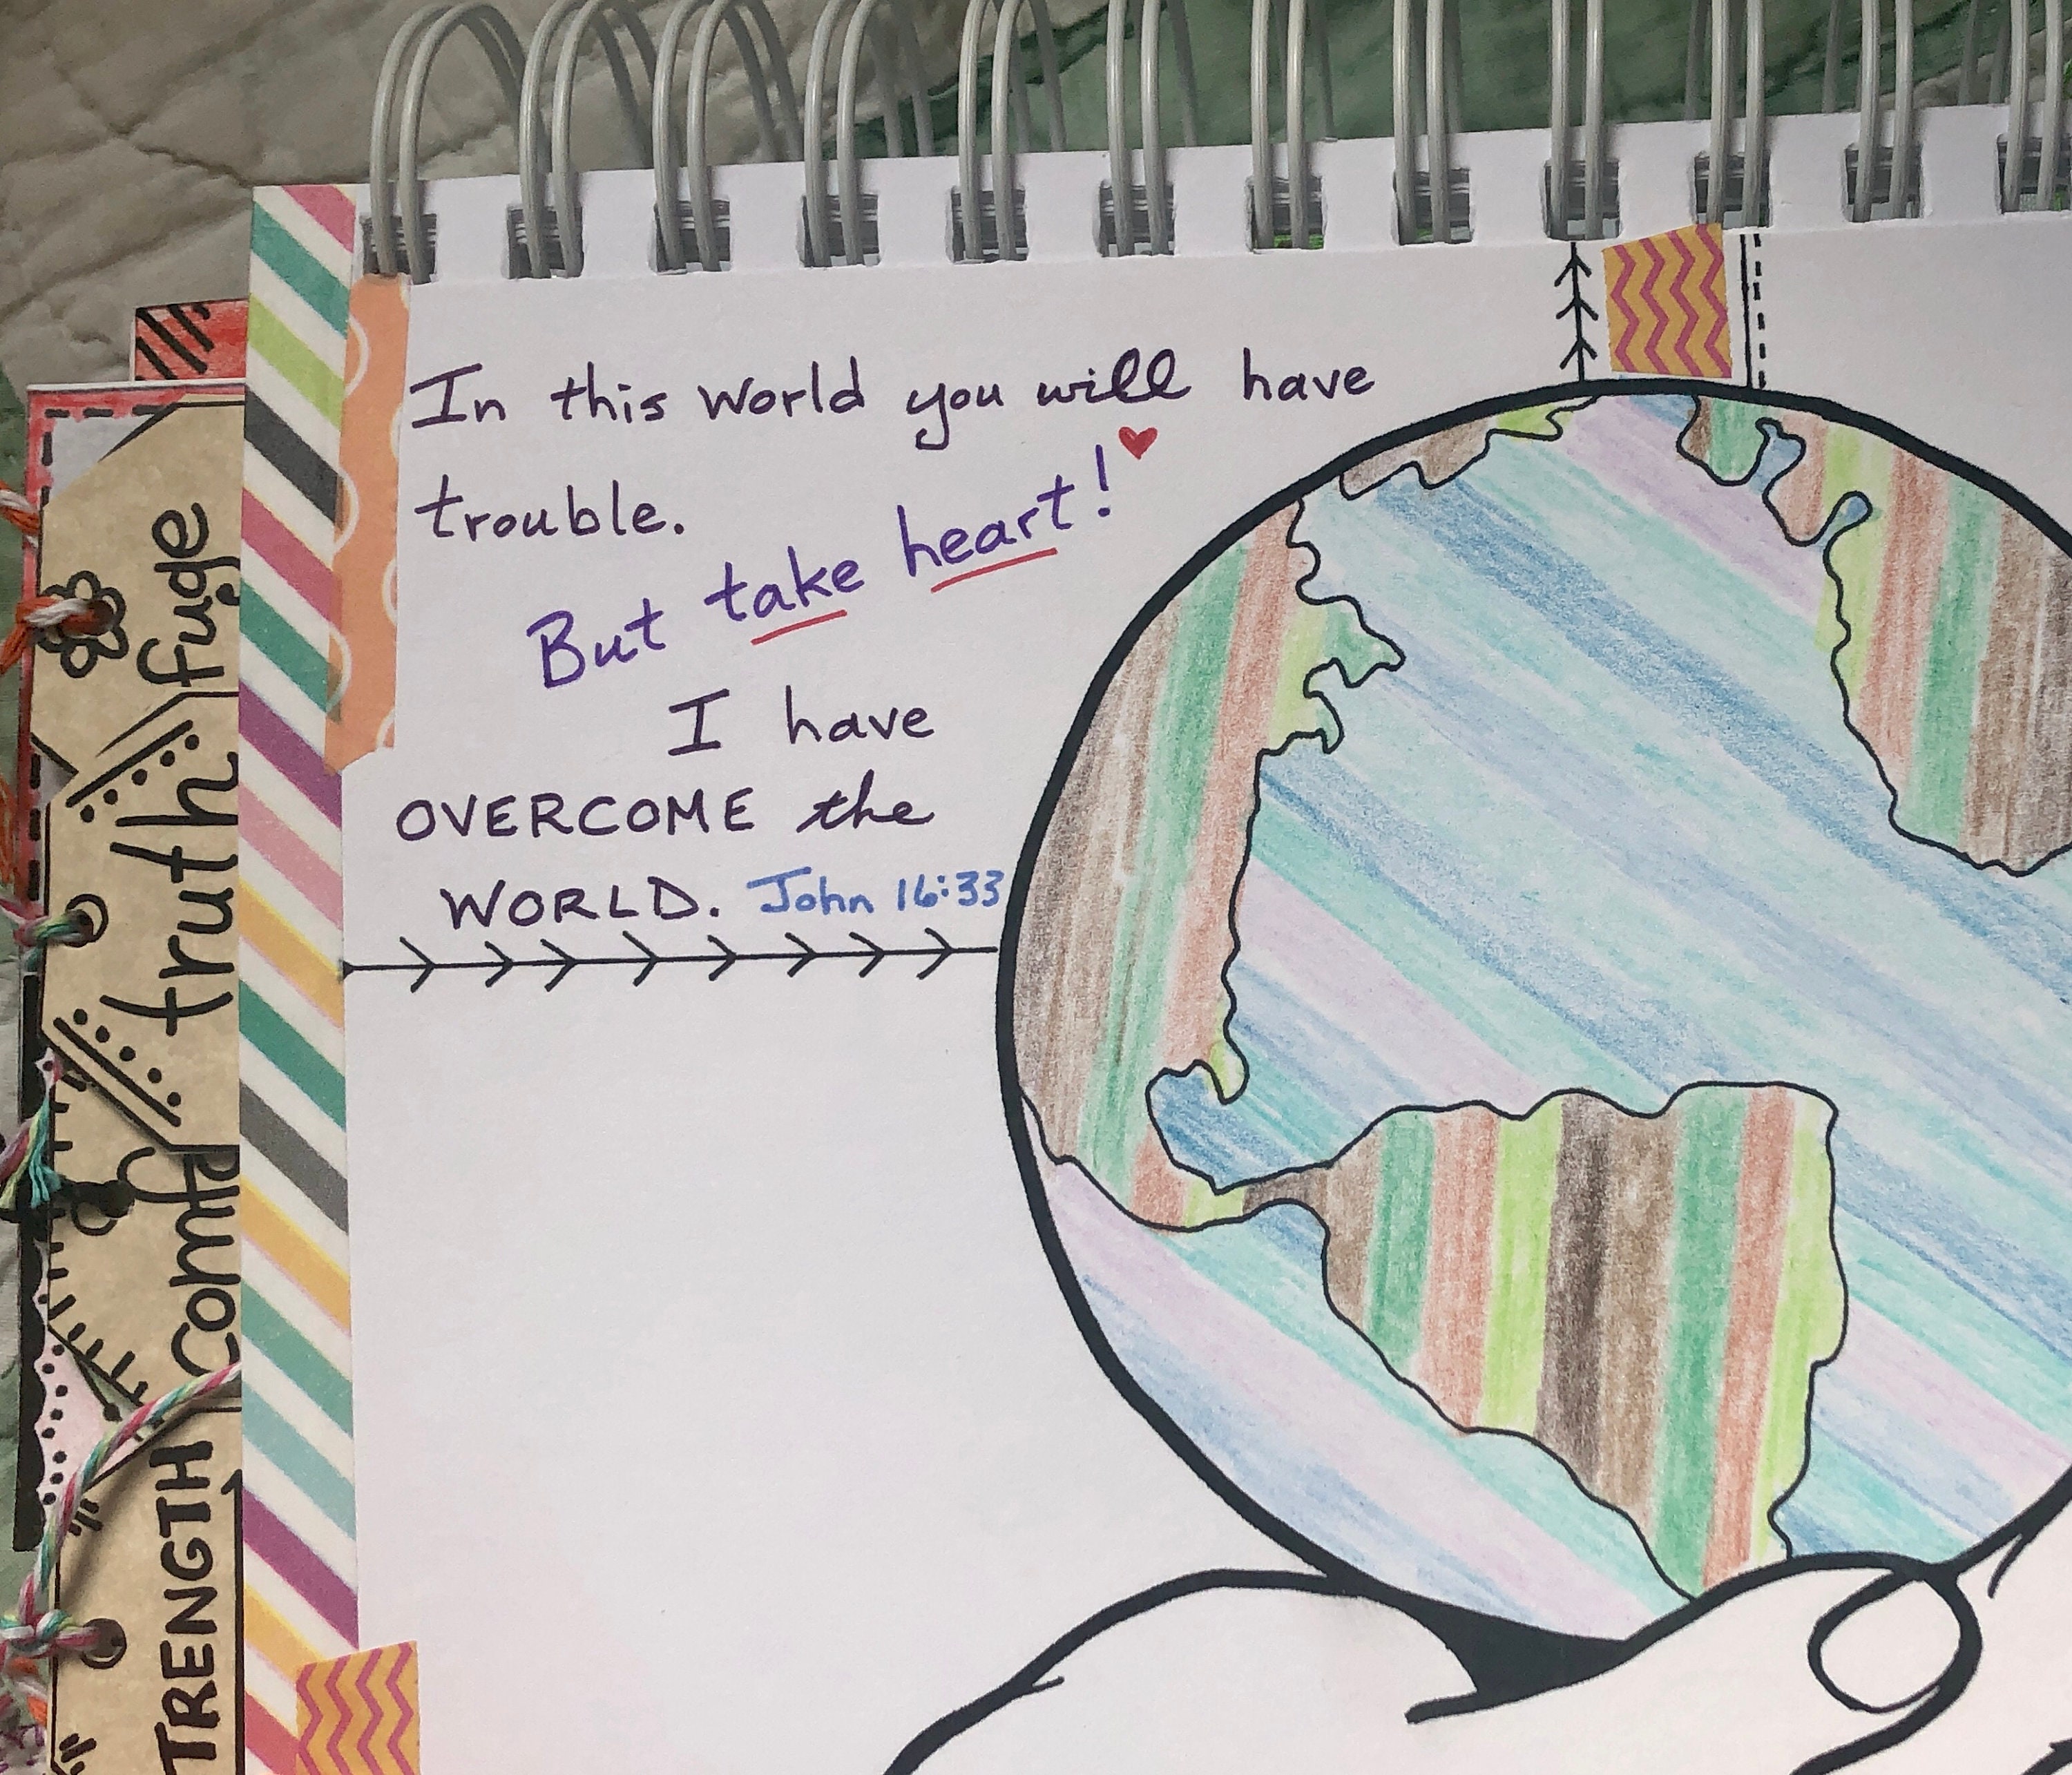 In this world you will have
trouble.
But take heart!
I have
OVERCOME the
WORLD. John 16:33
fuge
truth
TRENGTH